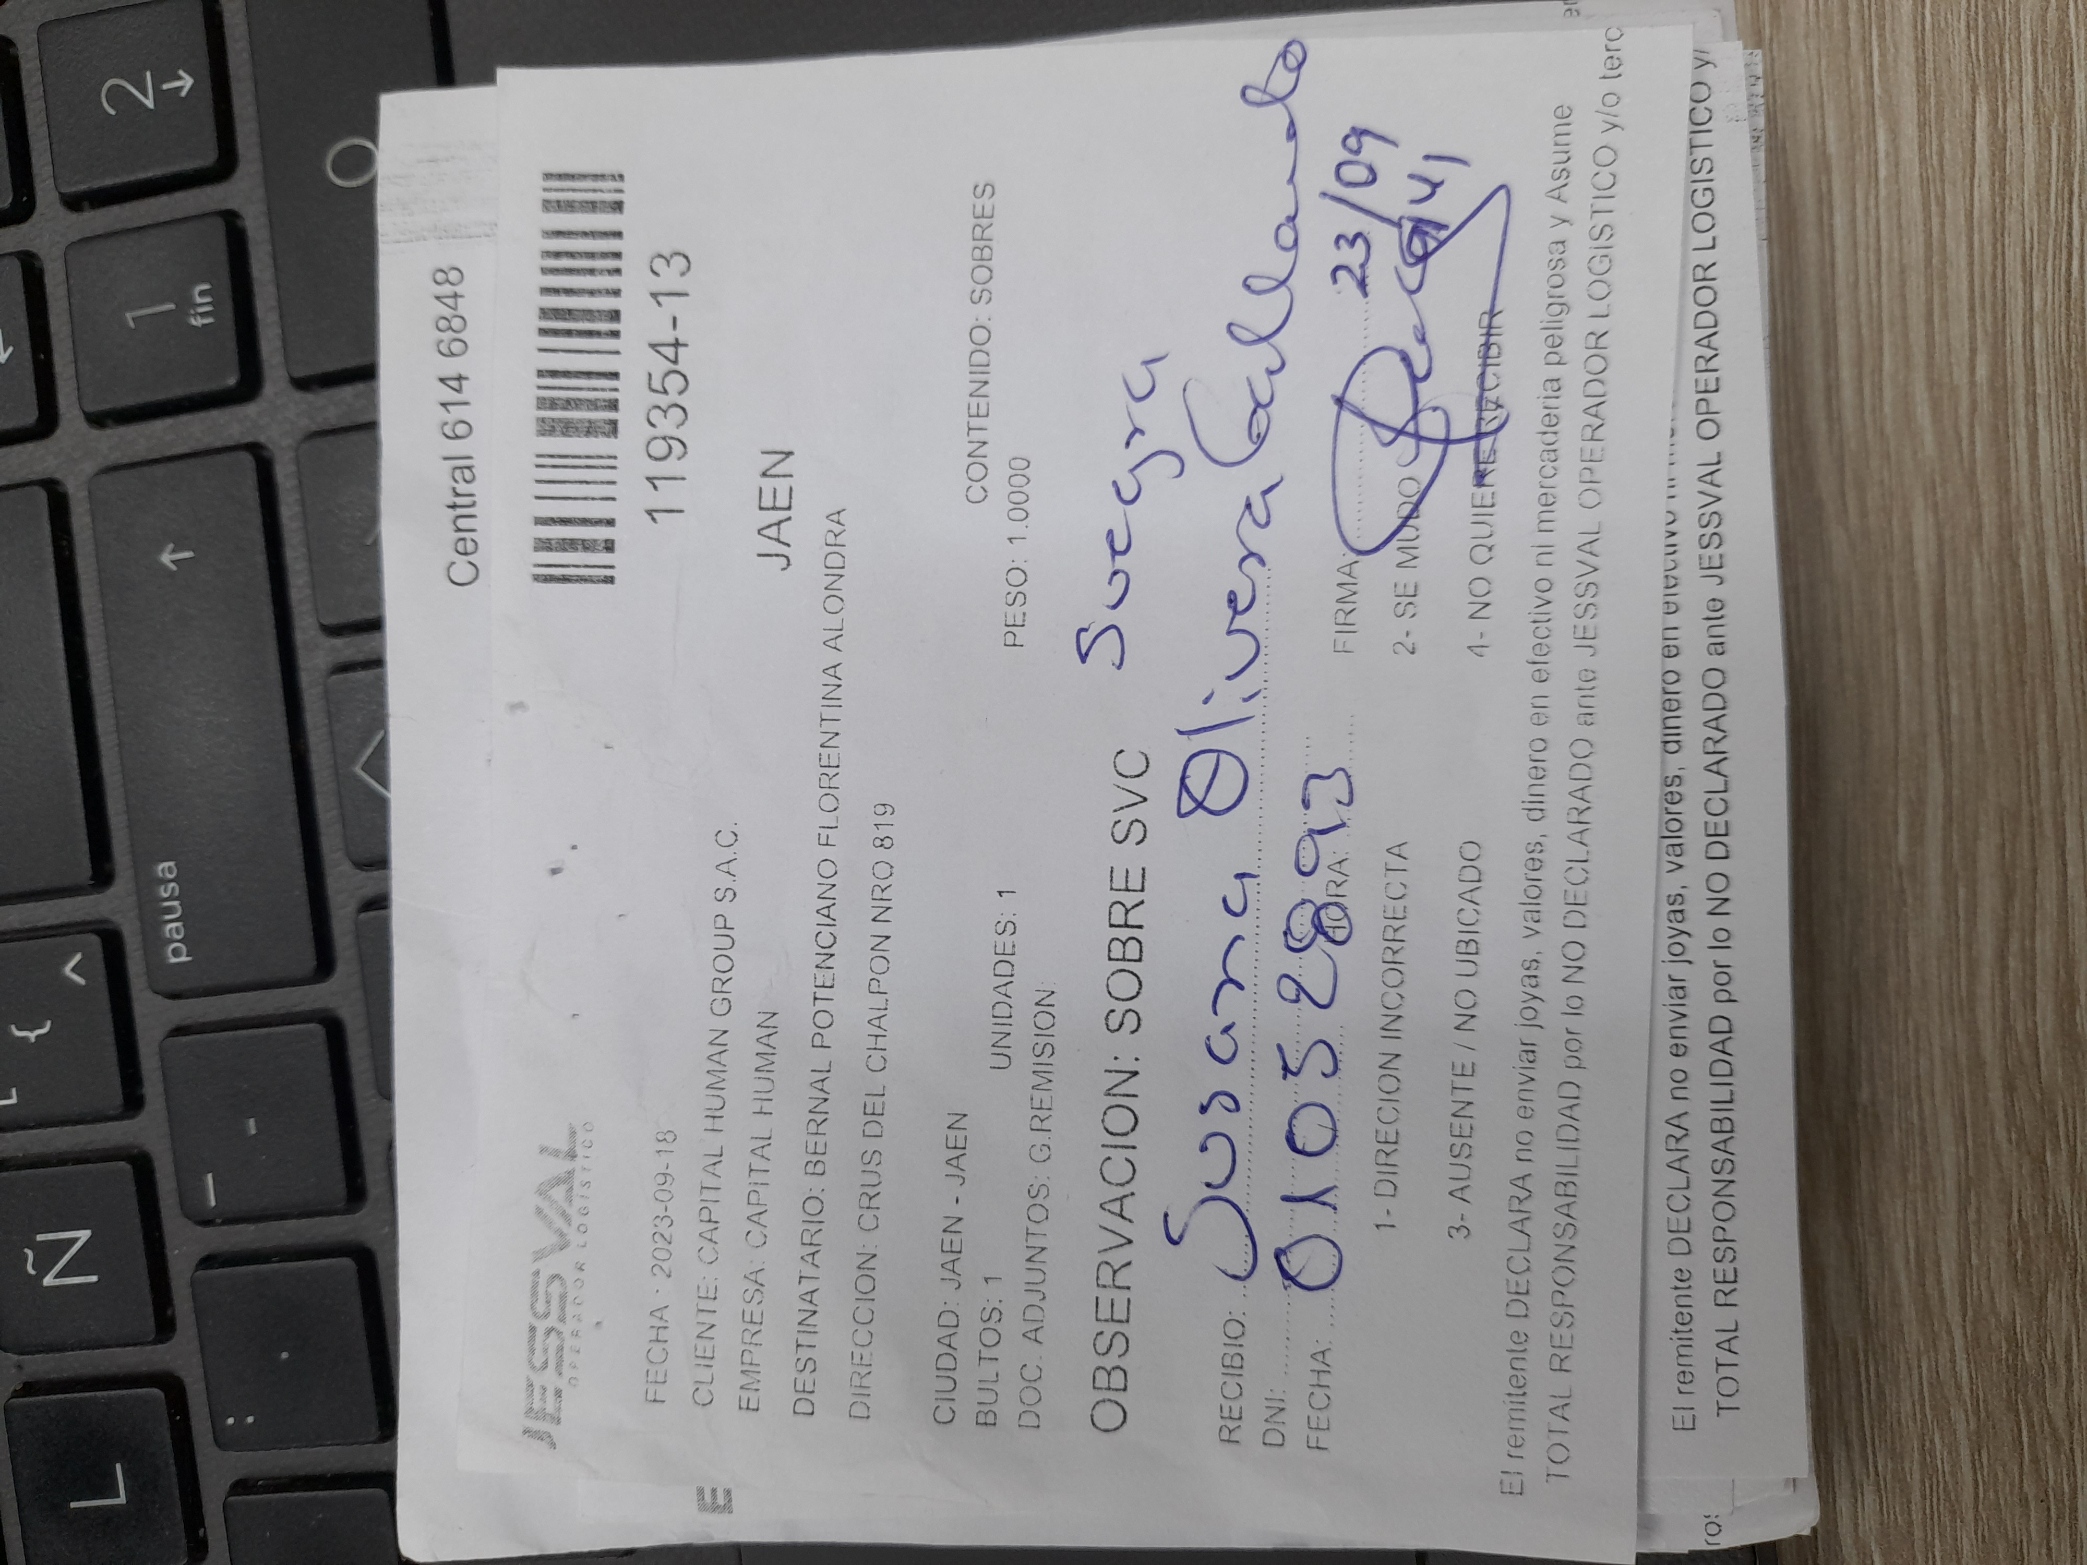 L
Ñ
{
^
pausa
↑
1
fin
2
↓
:
.
_
-
Central 614 6848
JESSVAL
OPERADOR LOGÍSTICO
119354-13
FECHA : 2023-09-18
E
CLIENTE: CAPITAL HUMAN GROUP S.A.C.
EMPRESA: CAPITAL HUMAN
JAEN
DESTINATARIO: BERNAL POTENCIANO FLORENTINA ALONDRA
DIRECCION: CRUS DEL CHALPON NRO 819
CIUDAD: JAEN - JAEN
CONTENIDO: SOBRES
BULTOS: 1 UNIDADES: 1 PESO: 1.0000
DOC. ADJUNTOS: G.REMISION
OBSERVACION: SOBRE SVC Suegra
RECIBIO: Susana Olivera Gallardo
DNI: 010528893
FECHA: HORA: FIRMA: 23/09
1- DIRECION INCORRECTA 2- SE MUDO
3- AUSENTE / NO UBICADO 4- NO QUIERE RECIBIR
El remitente DECLARA no enviar joyas, valores, dinero en efectivo ni mercaderia peligrosa y Asume
TOTAL RESPONSABILIDAD por lo NO DECLARADO ante JESSVAL OPERADOR LOGISTICO y/o terc
El remitente DECLARA no enviar joyas, valores, dinero en efectivo ni
TOTAL RESPONSABILIDAD por lo NO DECLARADO ante JESSVAL OPERADOR LOGISTICO y/